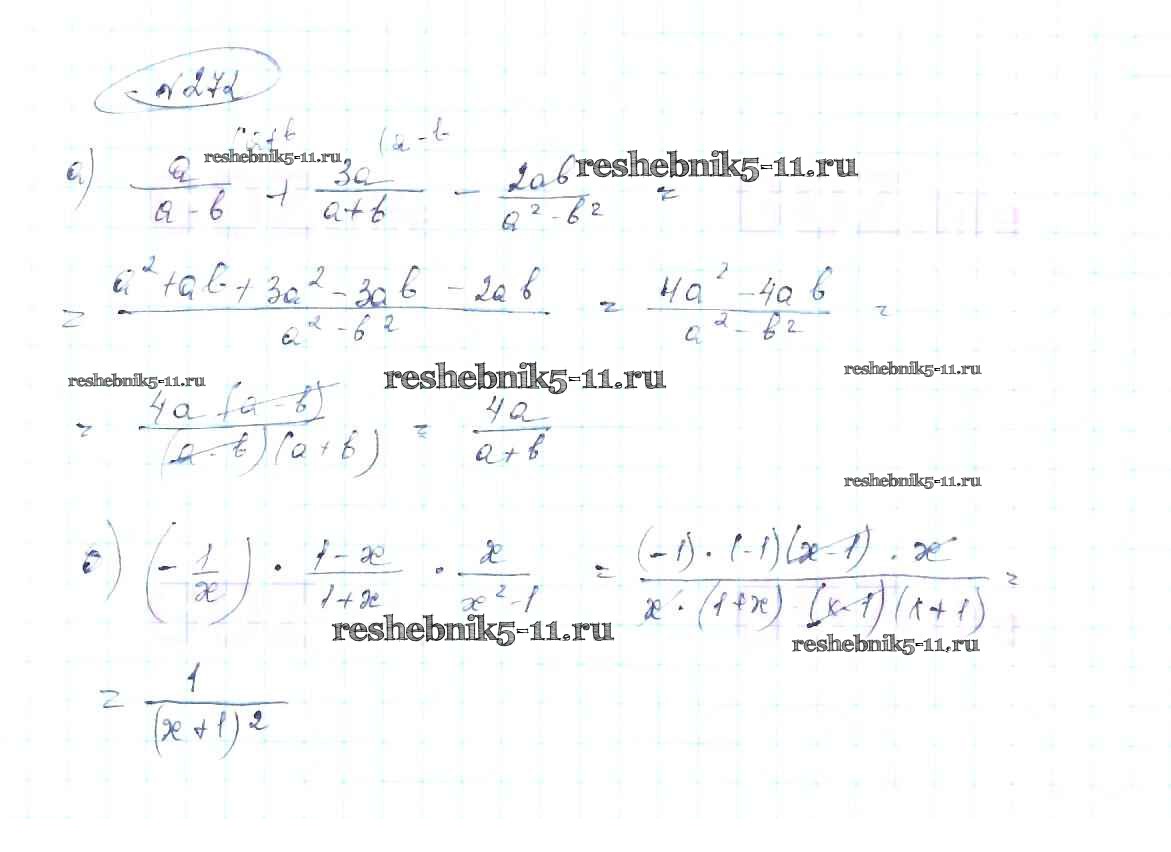 №272
(a+b (a-b
а) a/(a-b) + 3a/(a+b) - 2ab/(a²-b²) =
= (a²+ab+3a²-3ab-2ab)/(a²-b²) = (4a²-4ab)/(a²-b²) =
= 4a(a-b)/((a-b)(a+b)) = 4a/(a+b)
б) (-1/x) · (1-x)/(1+x) · x/(x²-1) = ((-1)·(-1)(x-1)·x)/(x·(1+x)(x-1)(x+1)) =
= 1/(x+1)²
reshebnik5-11.ru
reshebnik5-11.ru
reshebnik5-11.ru
reshebnik5-11.ru
reshebnik5-11.ru
reshebnik5-11.ru
reshebnik5-11.ru
reshebnik5-11.ru